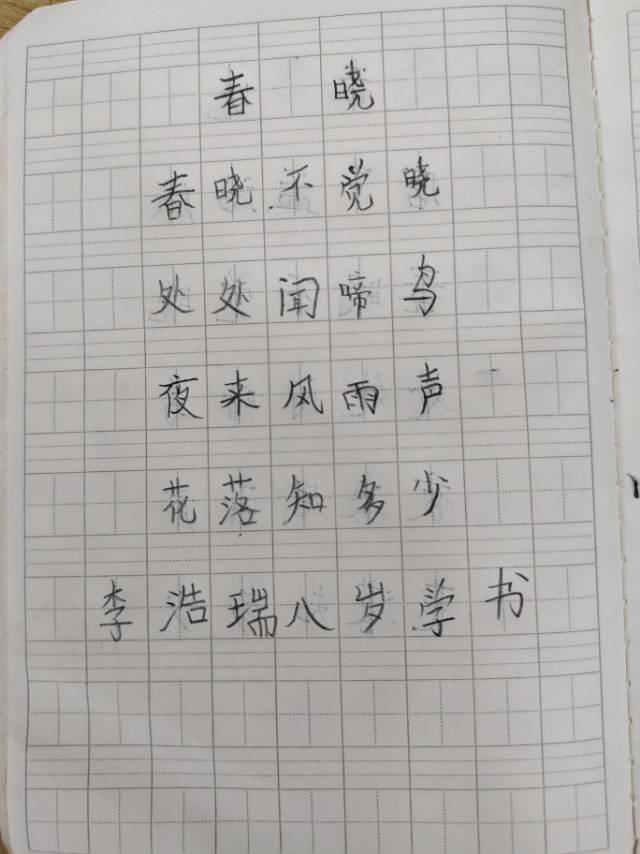 春晓
春晓不觉晓
处处闻啼鸟
夜来风雨声
花落知多少
李浩瑞八岁学书